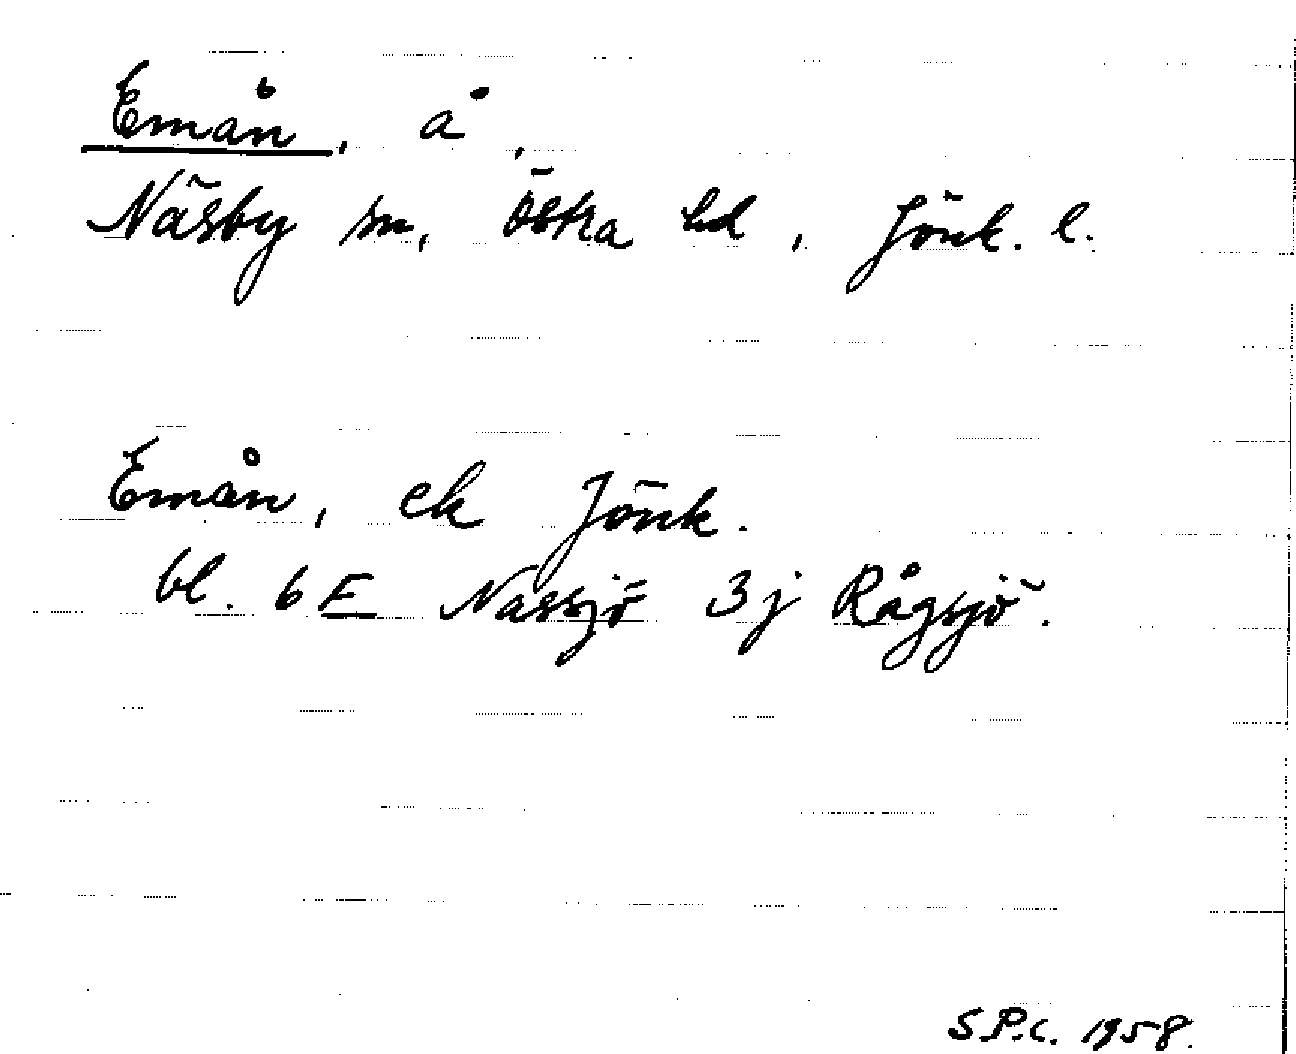 Emån, å,
Näsby sn, Östra hd, Jönk. l.
Emån, ek Jönk.
bl. 6 E Nässjö 3j Rågsjö.
S.P.C. 1958.